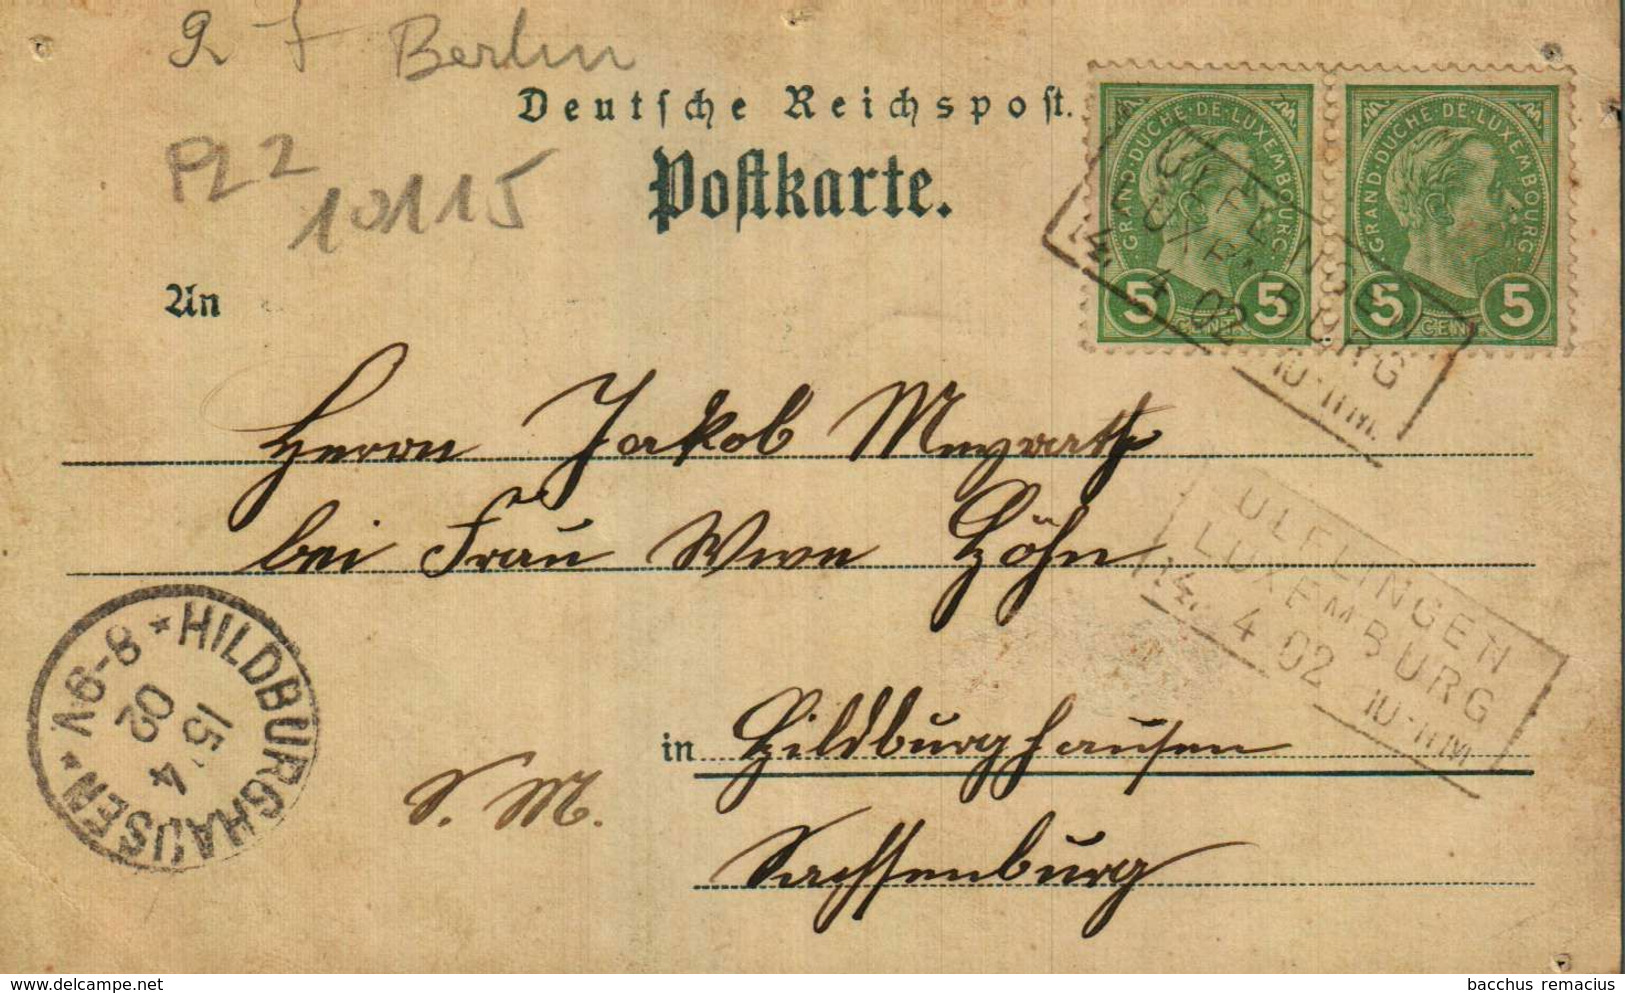 Berlin
PLZ
10115
Deutsche Reichspost.
Postkarte.
GRAND-DUCHÉ-DE-LUXEMBOURG
5 CENT. 5
GRAND-DUCHÉ DE-LUXEMBOURG
5 CENT. 5
ULFLINGEN
LUXEMBURG
14. 4 02 10-11 M
An
Herrn Jakob Meyrath
bei Frau Wwe Höhn
ULFLINGEN
LUXEMBURG
14. 4 02 10-11 M
in Hildburghausen
S. M.
Sachsenburg
* HILDBURGHAUSEN *
15 4
02
6-8
bacchus remacius